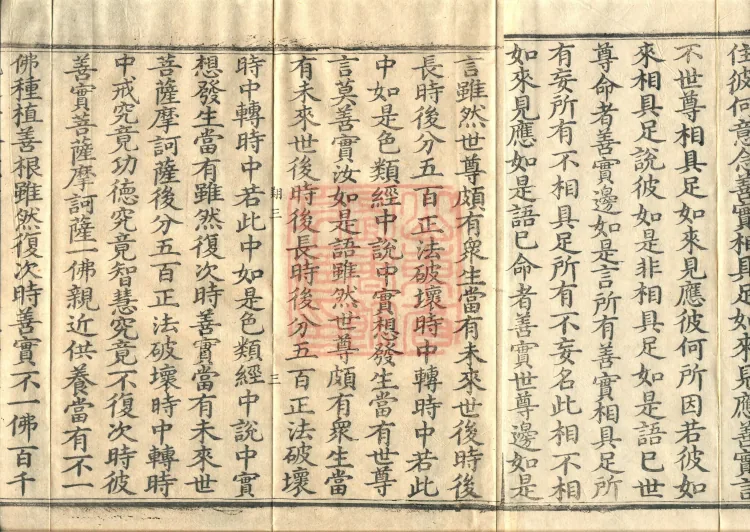 住彼何意念善實相具足如來見應善實言
不世尊相具足如來見應彼何所因若彼如
來相具足說彼如是非相具足如是語已世
尊命者善實邊如是言所有善實相具足所
有妄所有不相具足所有不妄名此相不相
如來見應如是語已命者善實世尊邊如是
言雖然世尊頗有眾生當有未來世後時後
長時後分五百正法破壞時中轉時中若此
中如是色類經中說中實想發生當有世尊
言莫善實汝如是語雖然世尊頗有眾生當
有未來世後時後長時後分五百正法破壞
翔三
三
時中轉時中若此中如是色類經中說中實
想發生當有雖然復次時善實當有未來世
菩薩摩訶薩後分五百正法破壞時中轉時
中戒究竟功德究竟智慧究竟不復次時彼
善實菩薩摩訶薩一佛親近供養當有不一
佛種植善根雖然復次時善實不一佛百千